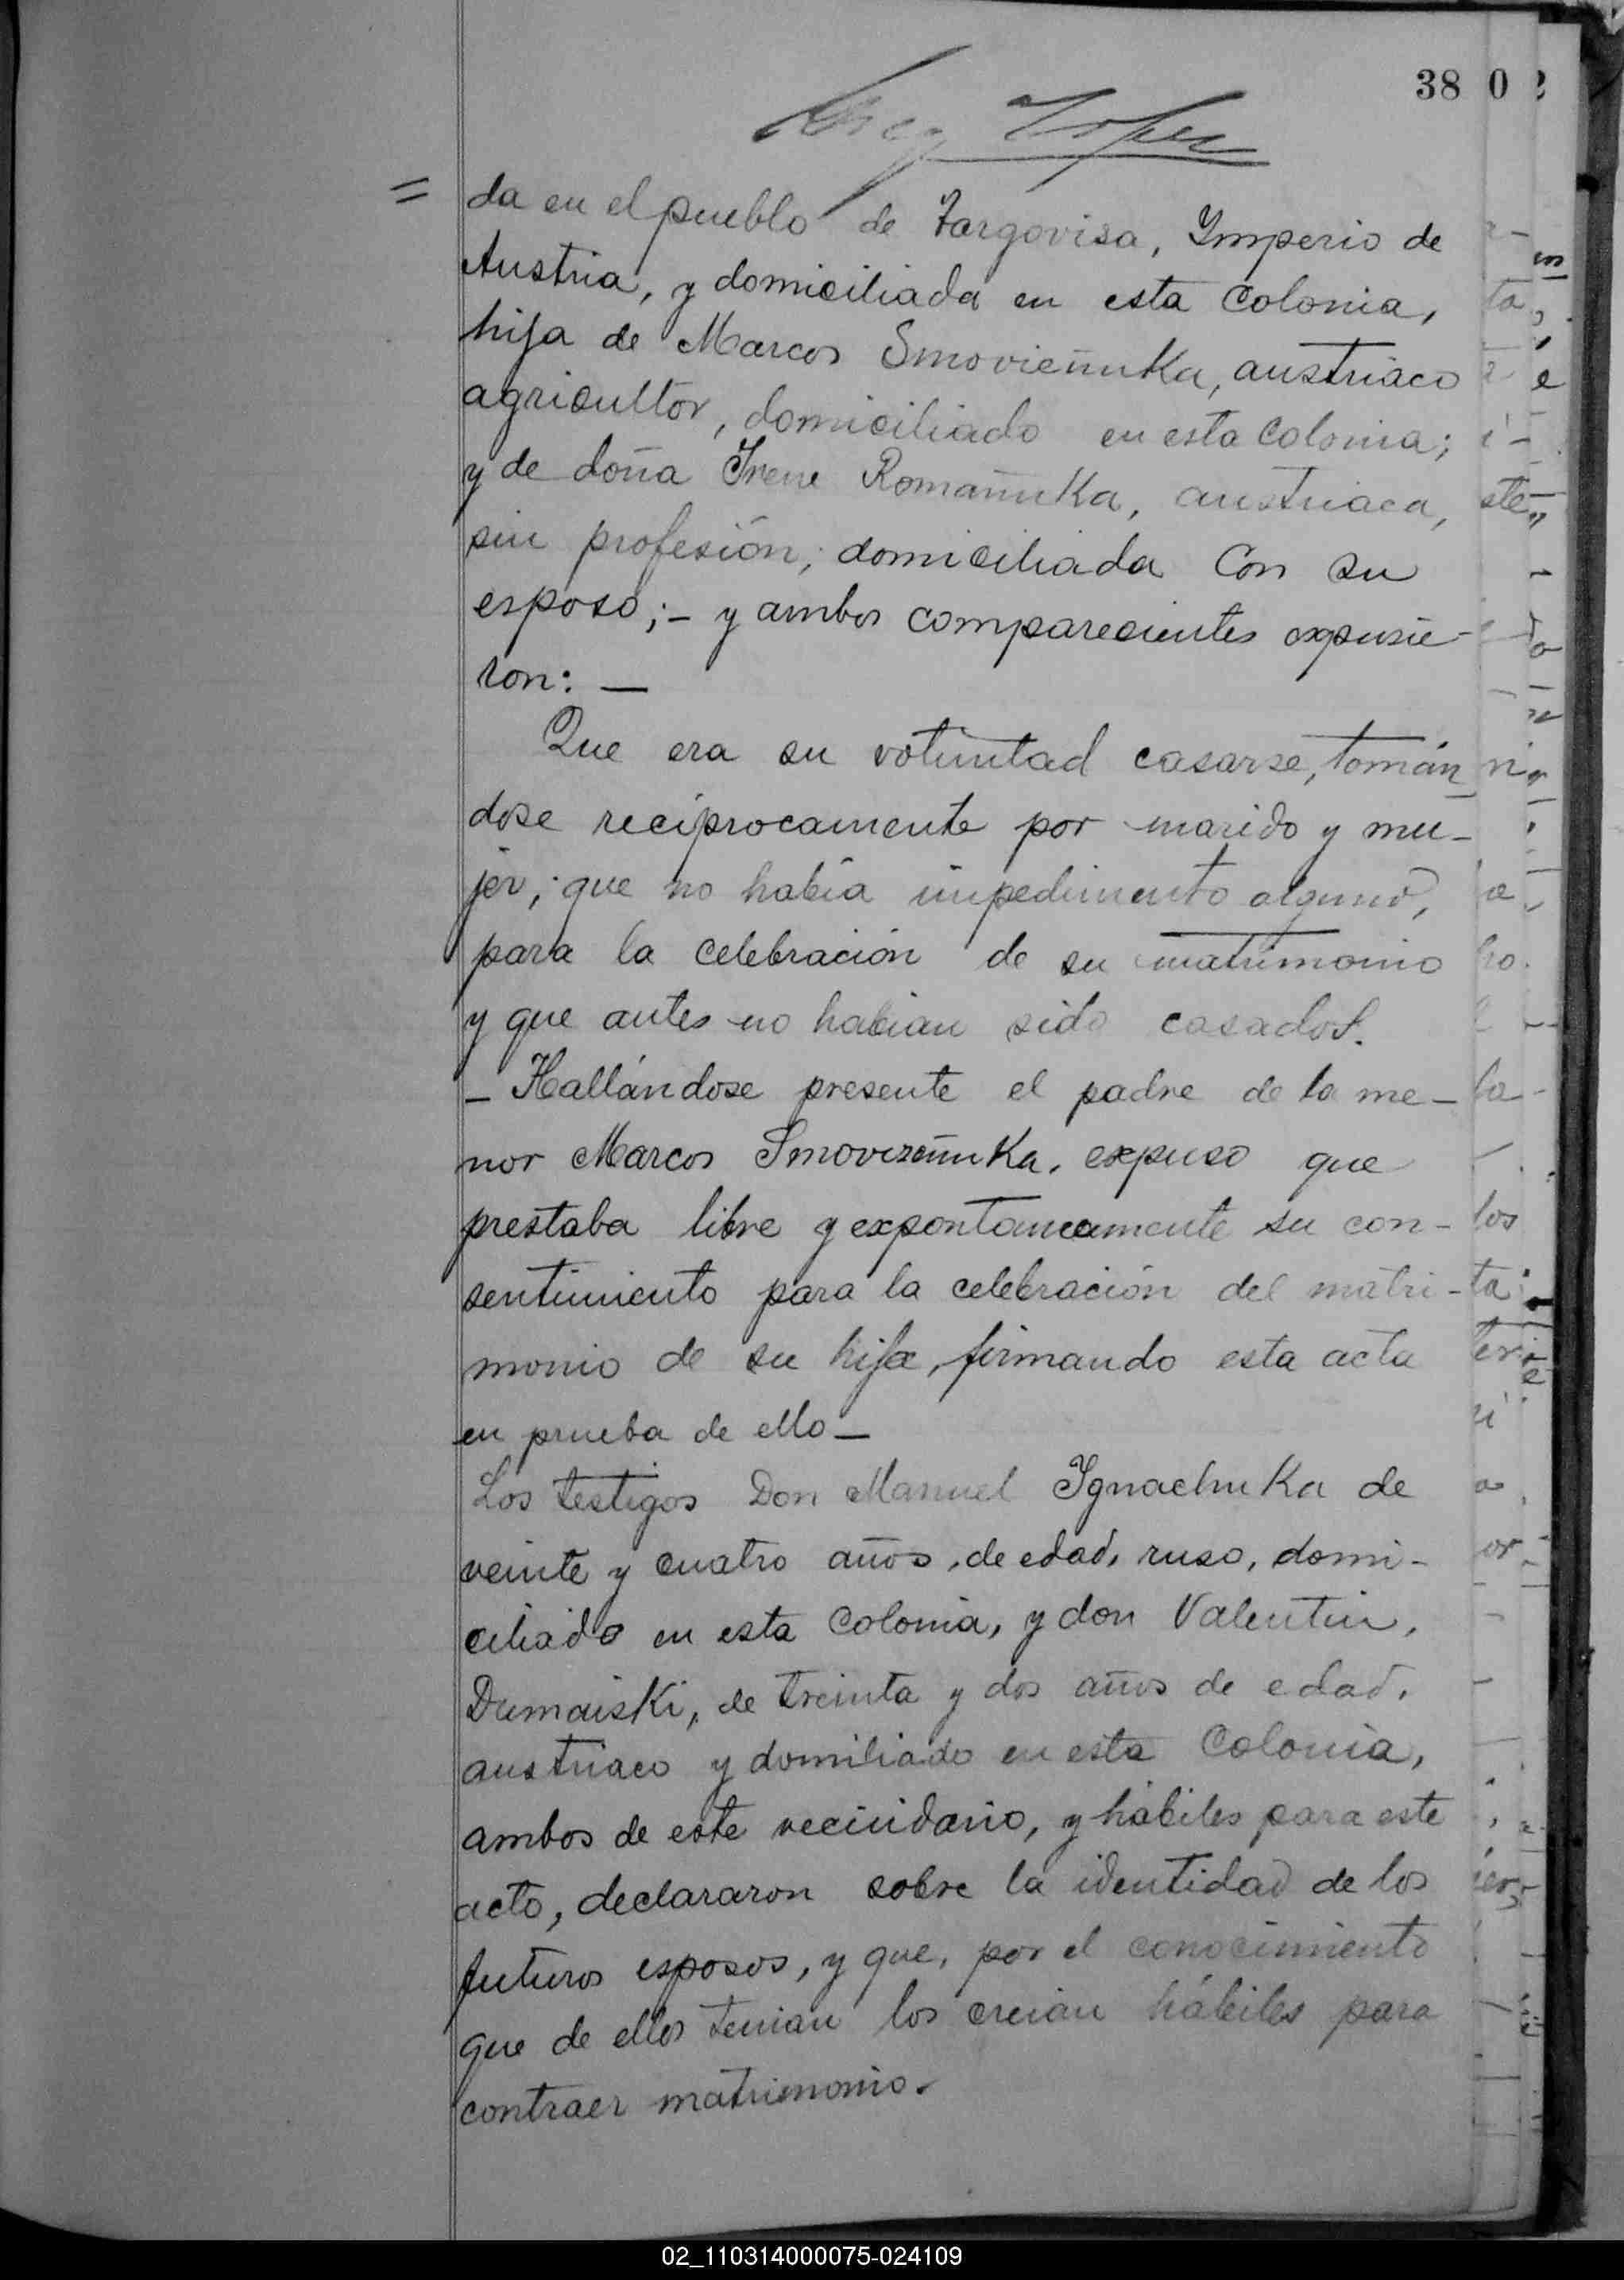 38
= da en el pueblo de Targovisa, Imperio de
Austria, y domiciliada en esta Colonia,
hija de Marcos Smovieñuka, austriaco
agricultor, domiciliado en esta Colonia;
y de doña Irene Romañuka, austriaca,
sin profesión; domiciliada con su
esposo; - y ambos comparecientes expusie-
ron: —
Que era su voluntad casarse, tomán
dose reciprocamente por marido y mu-
jer; que no había impedimento alguno,
para la celebración de su matrimonio
y que antes no habian sido casados.
- Hallándose presente el padre de la me-
nor Marcos Smovizeñuka, expuso que
prestaba libre y expontaneamente su con-
sentimiento para la celebración del matri-
monio de su hija, firmando esta acta
en prueba de ello —
Los testigos Don Manuel Ignachuka de
veinte y cuatro años, de edad, ruso, domi-
ciliado en esta Colonia, y don Valentin,
Dumaiski, de treinta y dos años de edad,
austriaco y domiliado en esta Colonia,
ambos de este vecindario, y hábiles para este
acto, declararon sobre la identidad de los
futuros esposos, y que, por el conocimiento
que de ellos tenian los creian hábiles para
contraer matrimonio.
02_110314000075-024109